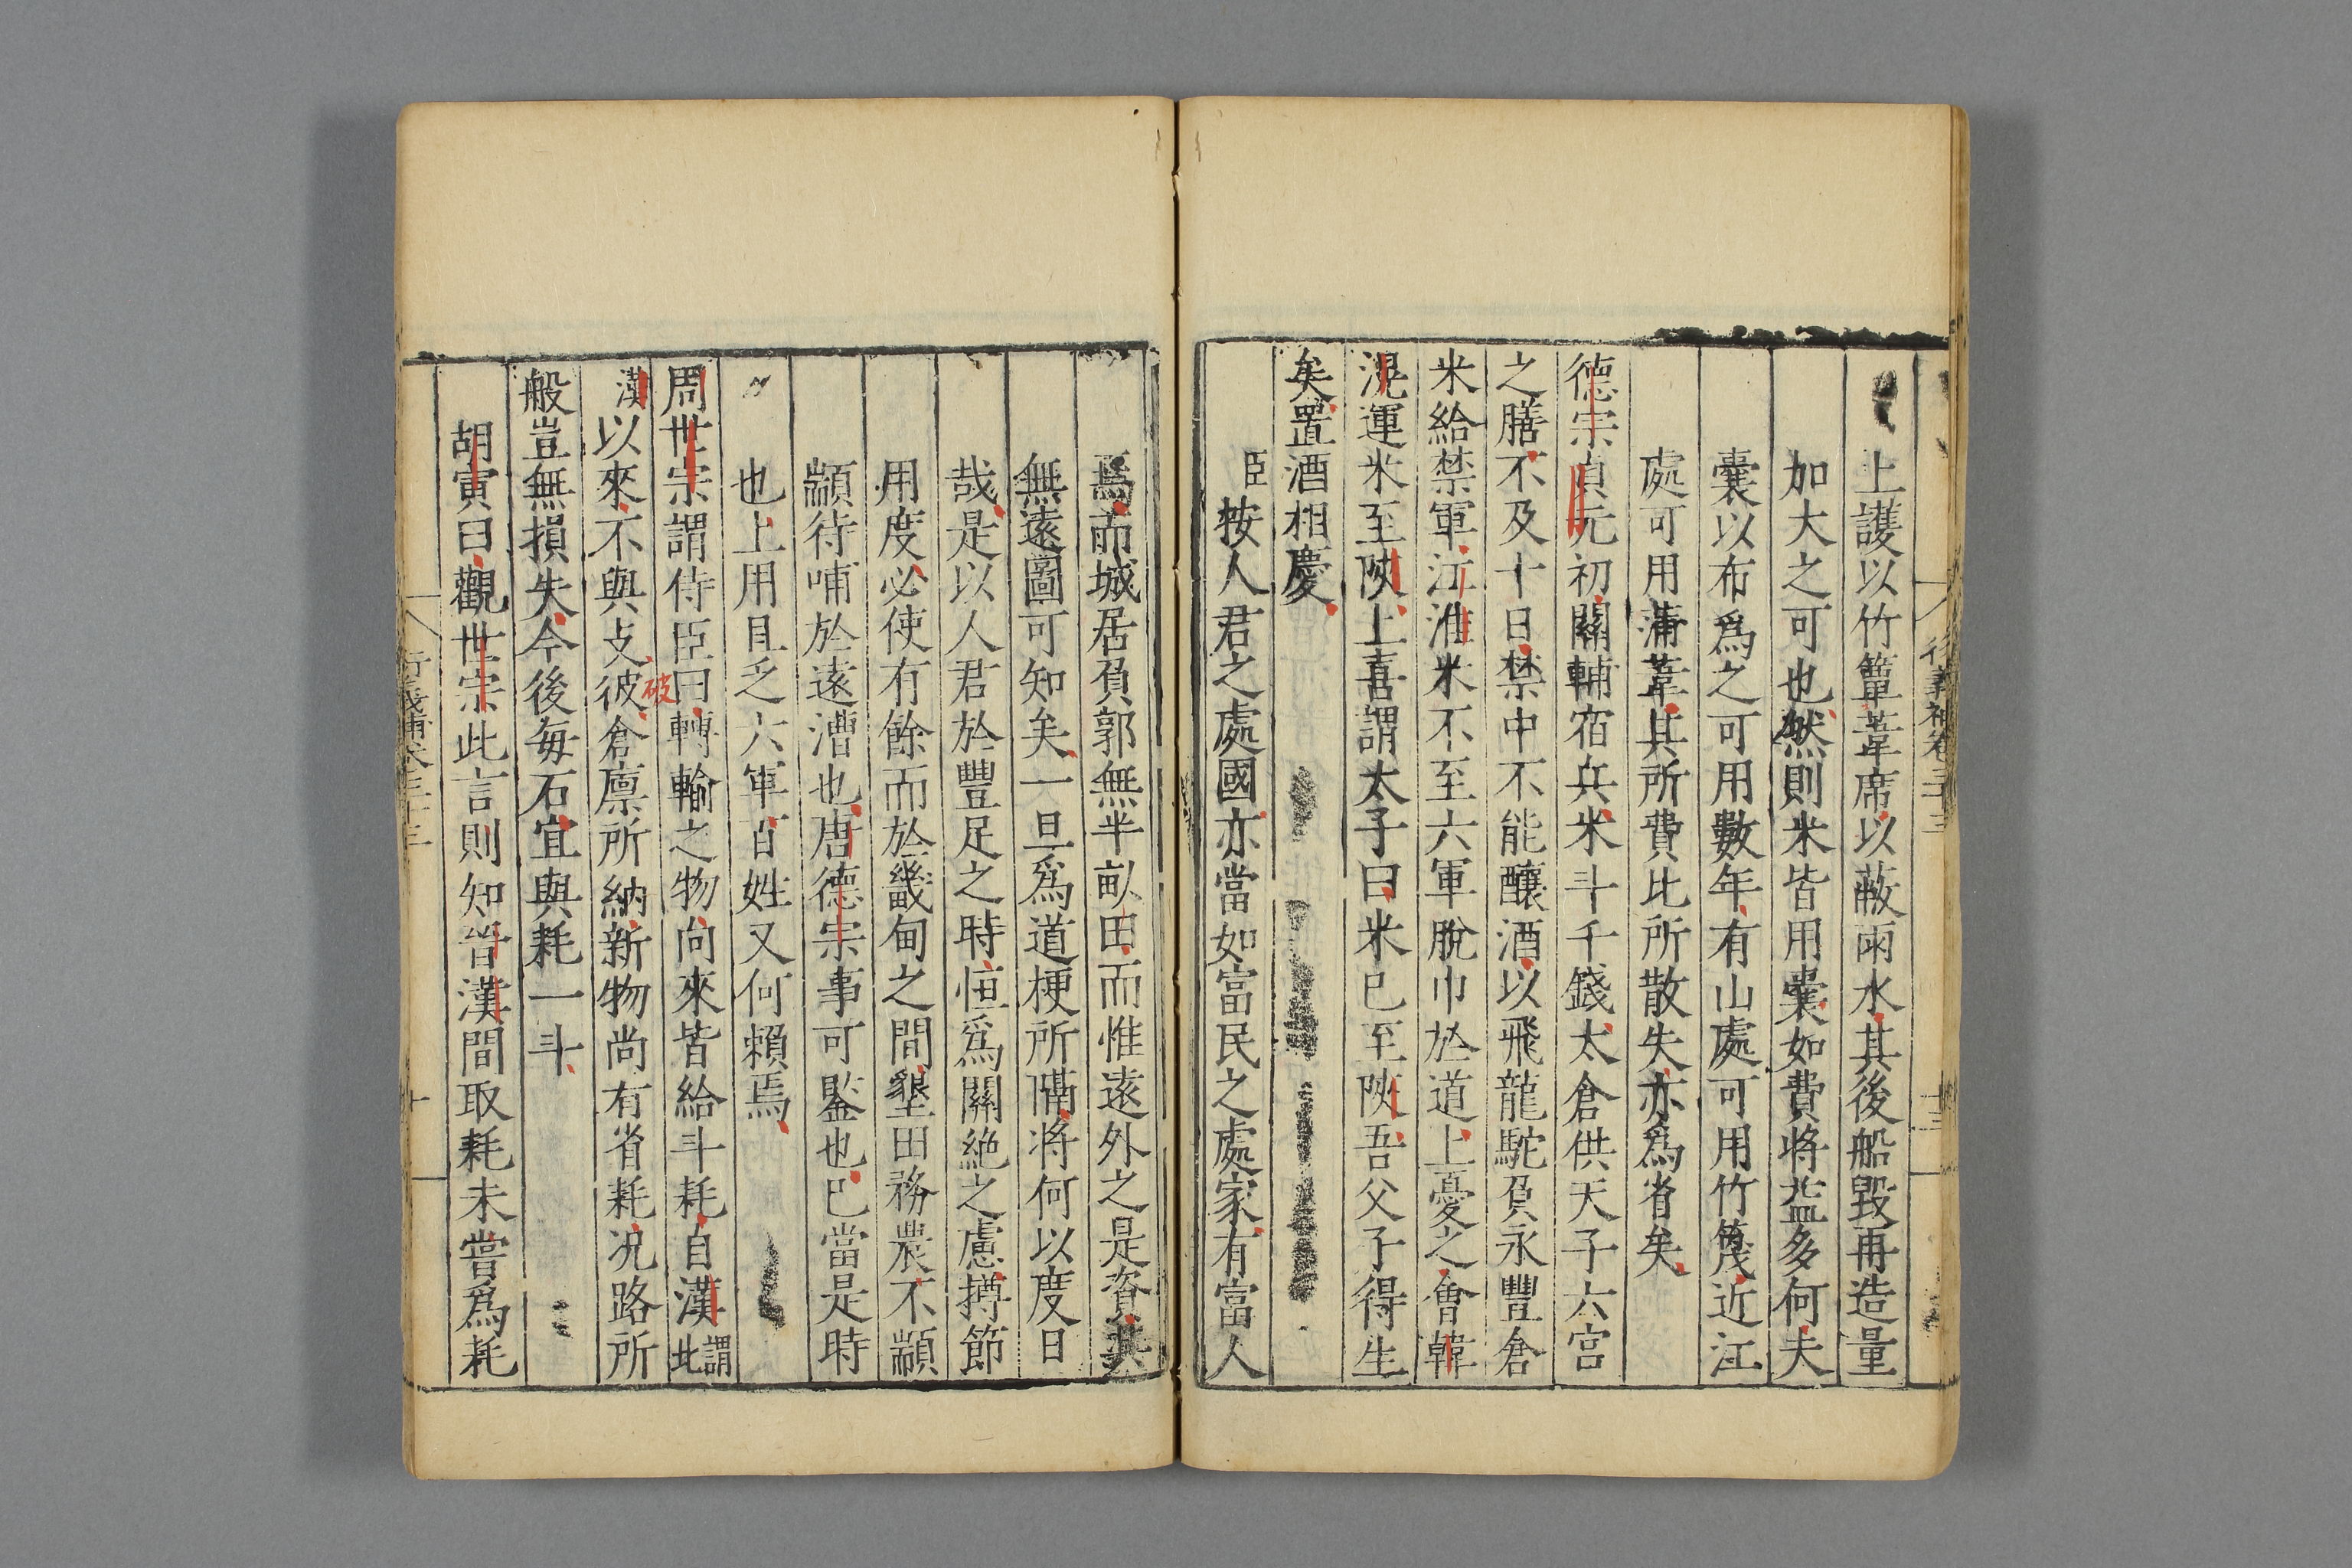 上護以竹簟葦席以蔽雨水其後船毀再造量
加大之可也然則米皆用囊如費將益多何夫
囊以布爲之可用數年有山處可用竹篾近江
處可用蒲葦其所費比所散失亦爲省矣
德宗貞元初關輔宿兵米斗千錢太倉供天子六宮
之膳不及十日禁中不能釀酒以飛龍駝負永豐倉
米給禁軍江淮米不至六軍脫巾於道上憂之會韓
滉運米至陝上喜謂太子曰米已至陝吾父子得生
矣置酒相慶
臣按人君之處國亦當如富民之處家有富人
焉而城居負郭無半畝田而惟遠外之是資其
無遠圖可知矣一旦爲道梗所隔將何以度日
哉是以人君於豐足之時恒爲關絶之慮撙節
用度必使有餘而於畿甸之間墾田務農不顓
顓待哺於遠漕也唐德宗事可鑒也已當是時
也上用且乏六軍百姓又何賴焉
周世宗謂侍臣曰轉輸之物向來皆給斗耗自漢謂北
漢以來不與攴破彼倉廪所納新物尚有省耗况路所
般豈無損失今後每石宜與耗一斗
胡寅曰觀世宗此言則知晉漢間取耗未嘗爲耗